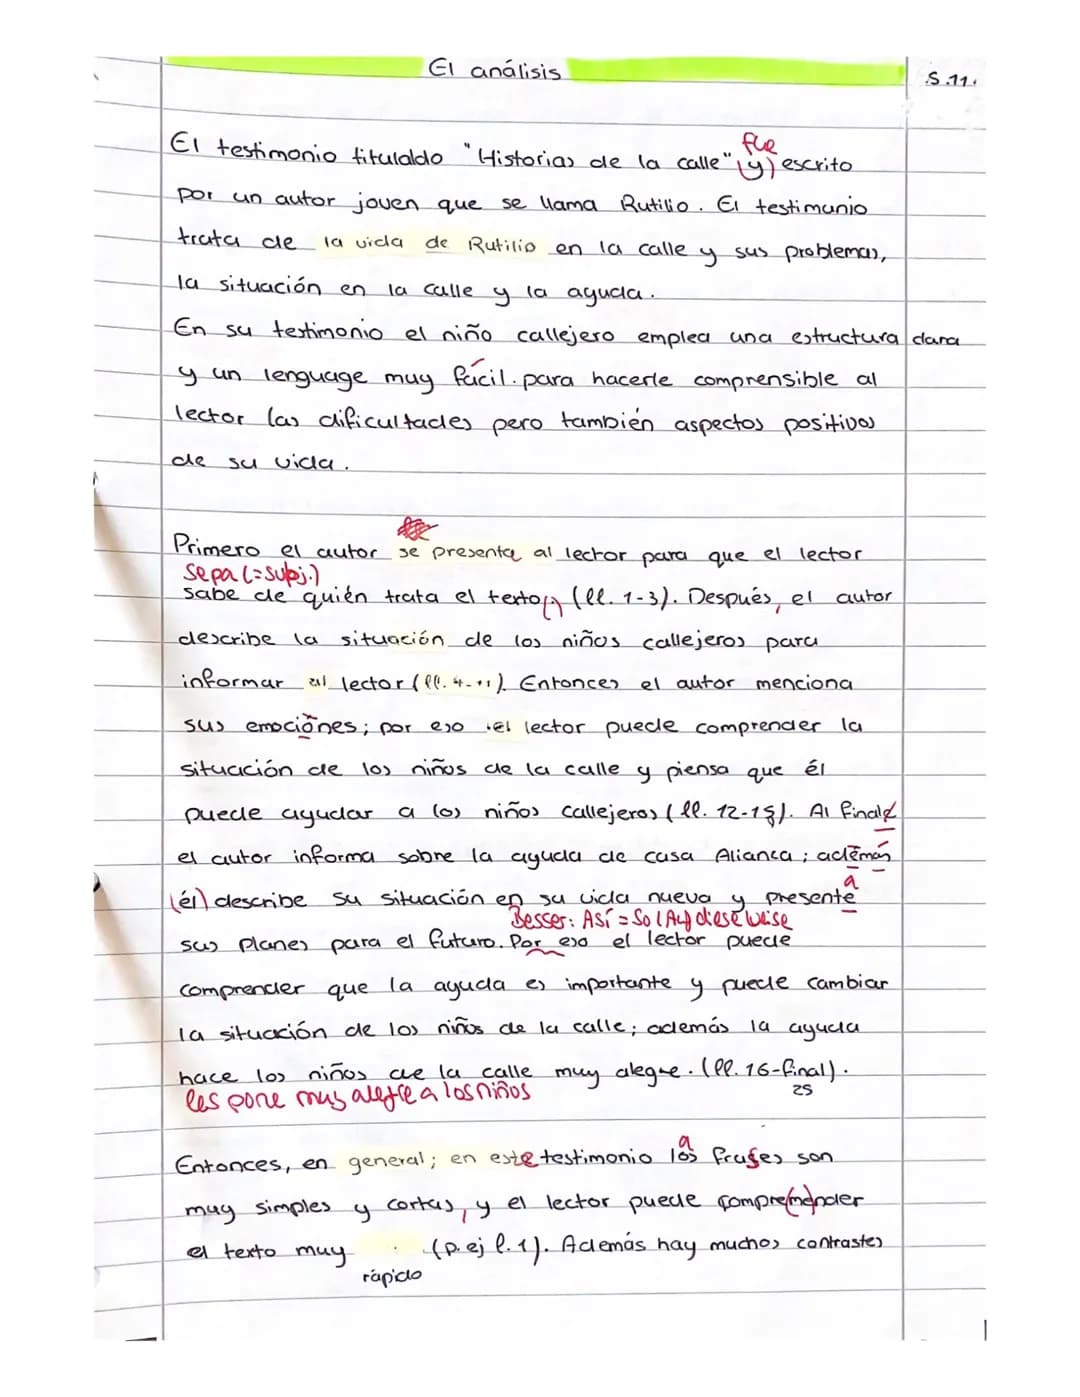 El análisis
S.11.
fue
El testimonio titulaldo "Historias de la calle" (y) escrito
por un autor joven que se llama Rutilio. El testimonio
trata de la vida de Rutilio en la calle y sus problemas,
la situación en la calle y la ayuda.
En su testimonio el niño callejero emplea una estructura clara
y un lenguage muy fácil para hacerle comprensible al
lector las dificultades pero también aspectos positivos
de su vida.
Primero el autor se presenta al lector para que el lector
sepa (=subj.)
sabe de quién trata el texto(.) (ll. 1-3). Después, el autor
describe la situación de los niños callejeros para
informar al lector (ll. 4-11). Entonces el autor menciona
sus emociones; por eso el lector puede comprender la
situación de los niños de la calle y piensa que él
puede ayudar a los niños callejeros (ll. 12-15). Al finale
el autor informa sobre la ayuda de casa Alianca; además
(él) describe su situación en su vida nueva y presente
a
Besser: Así = So (Auf diese Weise
sus planes para el futuro. Por eso el lector puede
comprender que la ayuda es importante y puede cambiar
la situación de los niños de la calle; además la ayuda
hace los niños de la calle muy alegre. (ll. 16-final).
25
les pone muy alegre a los niños
a
Entonces, en general; en este testimonio los frases son
muy simples y cortas, y el lector puede compre(me)nder
el texto muy (p. ej l. 1). Además hay muchos contrastes
rápido